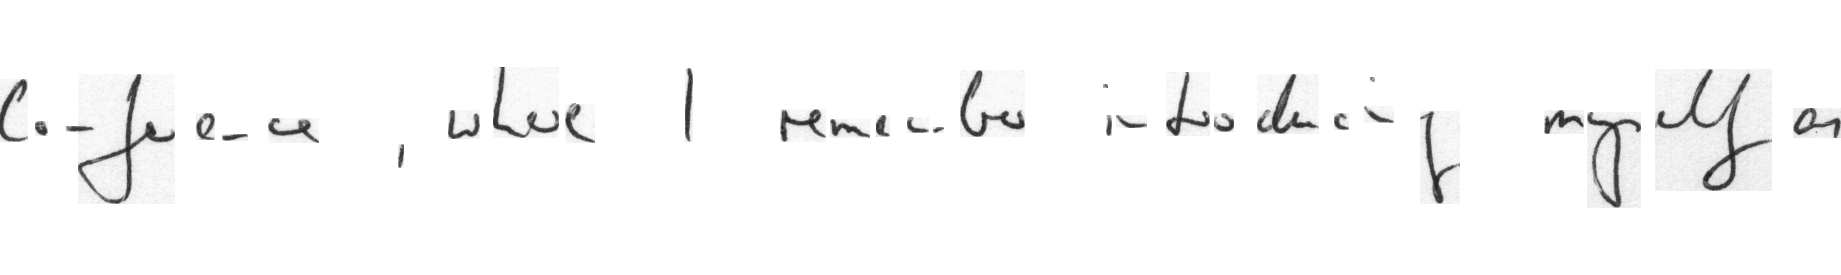 Conference, where I remember introducing myself as